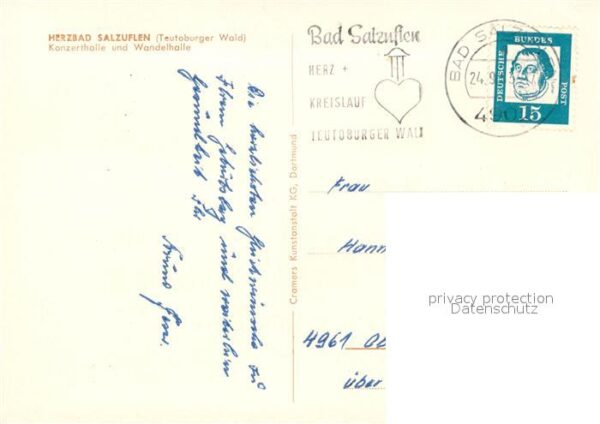 HERZBAD SALZUFLEN (Teutoburger Wald)
Konzerthalle und Wandelhalle
Die herzlichsten Glückwünsche zu
Ihrem Geburtstag und weiterhin
Gesundheit Ihr
Cramers Kunstanstalt KG, Dortmund
Bad Salzuflen
HERZ +
KREISLAUF
TEUTOBURGER WALD
BAD SALZ
24.9
490
DEUTSCHE BUNDES POST
15
Frau
Hann
4961 Ob
über
privacy protection
Datenschutz